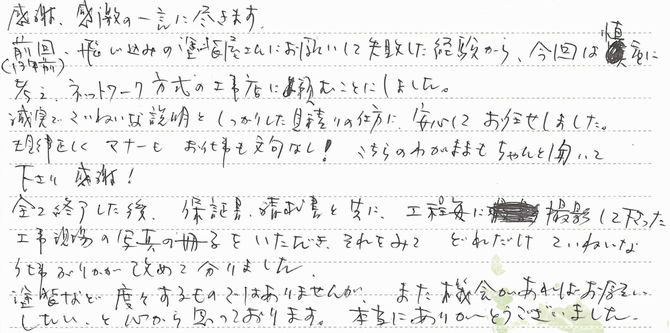 感謝、感激の一言に尽きます。
前回、飛び込みの塗装屋さんにお願いして失敗した経験から、今回は慎重に
(13年前)
考え、ネットワーク方式の工事店に頼むことにしました。
誠実でていねいな説明としっかりした見積りの仕方に、安心してお任せしました。
規律正しくマナーもお仕事も文句なし！こちらのわがままもちゃんと聞いて
下さり感謝！
全て終了した後、保証書、請求書と共に、工程毎に撮影して下さった
工事現場の写真の冊子をいただき、それをみてどれだけていねいな
仕事ぶりかが改めて分りました。
塗替など度々するものではありませんが、また機会があればお願い
したい、と心から思っております。本当にありがとうございました。